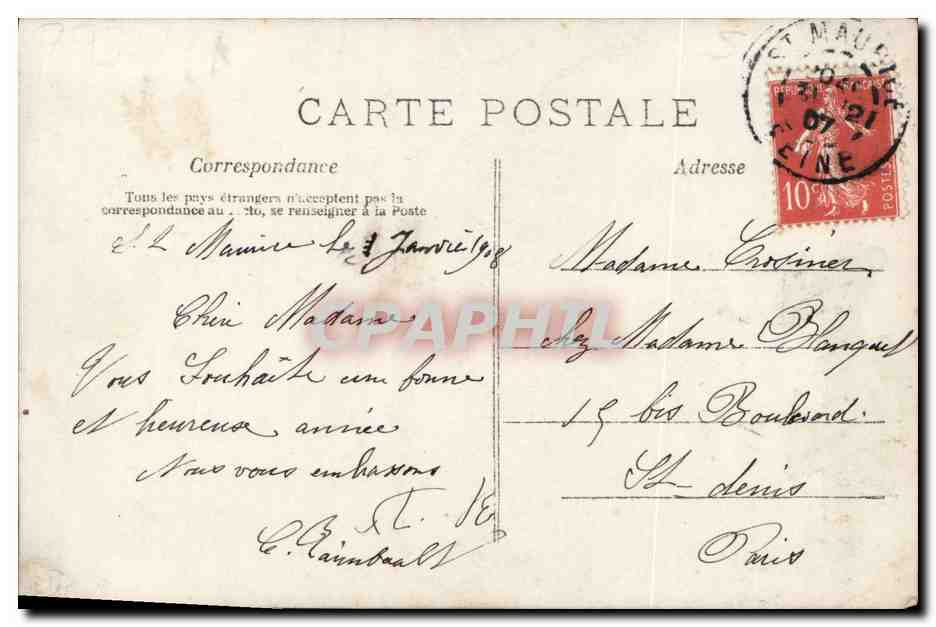 CARTE POSTALE
Correspondance
Tous les pays étrangers n'acceptent pas la
correspondance au recto, se renseigner à la Poste
St Maurice le 1 Janvié 1908
Chèr Madame
Vous Souhaite une bonne
et heureuse année
Nous vous embrassons
C. Raimbault
Adresse
ST MAURICE
31 21
07
SEINE
RÉPUBLIQUE FRANÇAISE
10
POSTES
Madame Crosinier
chez Madame Blanquet
15 bis Boulevard
St denis
Paris
CPAPHIL